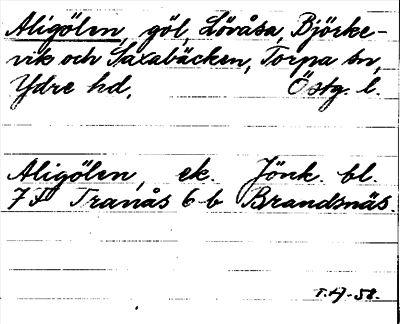 Aligölen, göl, Lövåsa, Björke-
vik och Saxabäcken, Torpa sn,
Ydre hd, Östg. l.
Aligölen, ek. Jönk. bl.
7F Tranås 6 b Brandsnäs.
-58.